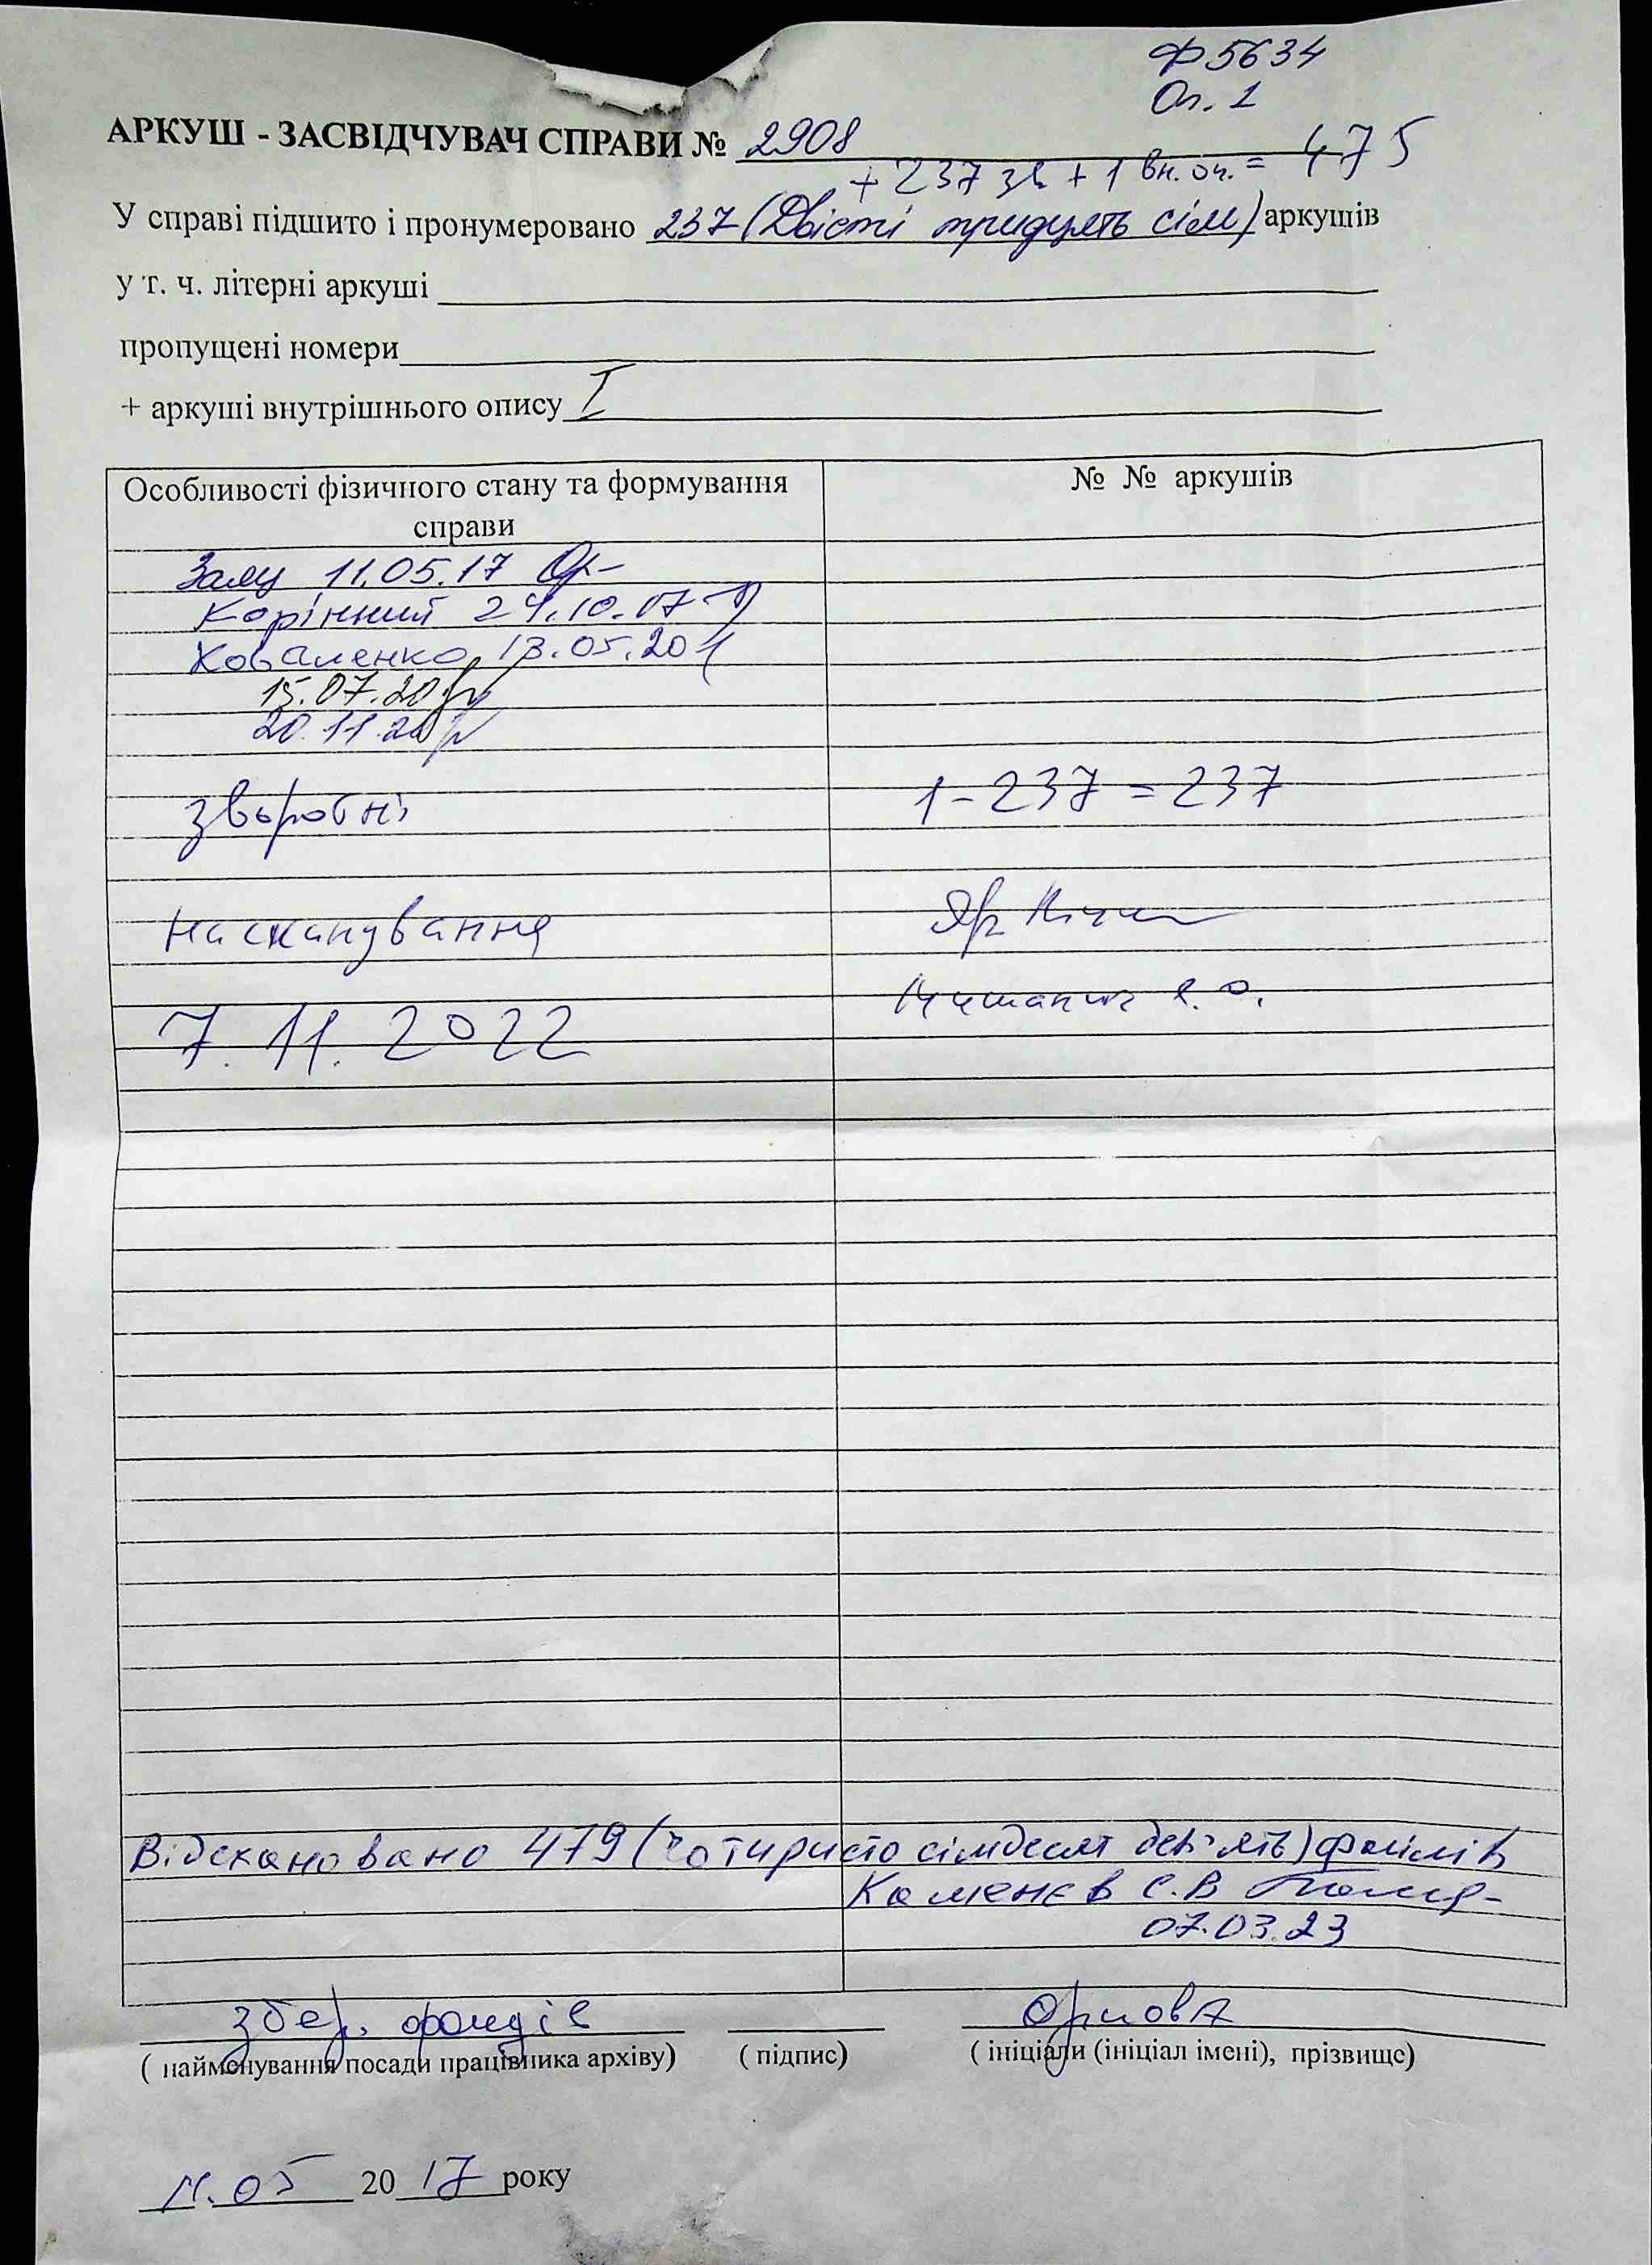 Ф 5634
Оп. 1
АРКУШ - ЗАСВІДЧУВАЧ СПРАВИ № 2908
+ 237 зв + 1 вн. оп. = 475
У справі підшито і пронумеровано 237 (Двісті тридцять сім) аркушів
у т. ч. літерні аркуші
пропущені номери
+ аркуші внутрішнього опису I
Особливості фізичного стану та формування справи
№ № аркушів
11.05.17
Корінний 24.10.17
Коваленко 13.05.20
15.07.20
20.11.20
зворотні 1 - 237 = 237
на сканування
7.11.2022
Відскановано 479 (чотириста сімдесят дев'ять) файлів
Каменєв С.В
07.03.23
збер. фондів Орлова
( найменування посади працівника архіву) ( підпис) ( ініціали (ініціал імені), прізвище)
11.05 2017 року